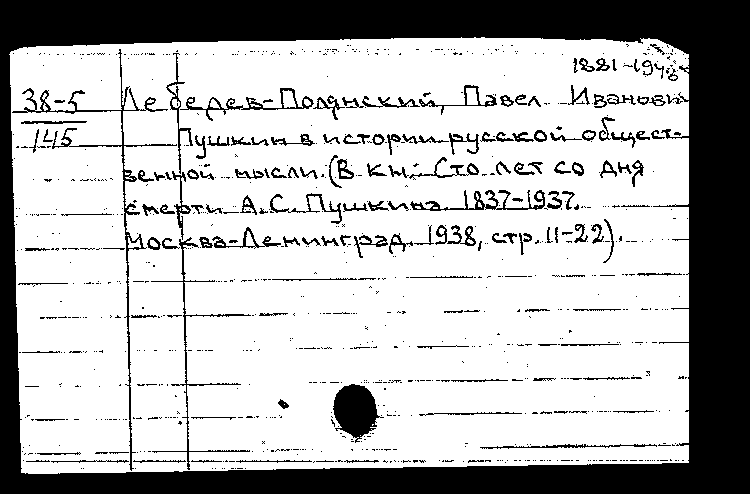 1881-1948
38-5 Лебедев-Полянский, Павел Иванович
145 Пушкин в истории русской общест-
венной мысли. (В кн.: Сто лет со дня
смерти А.С. Пушкина. 1837-1937.
Москва-Ленинград. 1938, стр. 11-22).